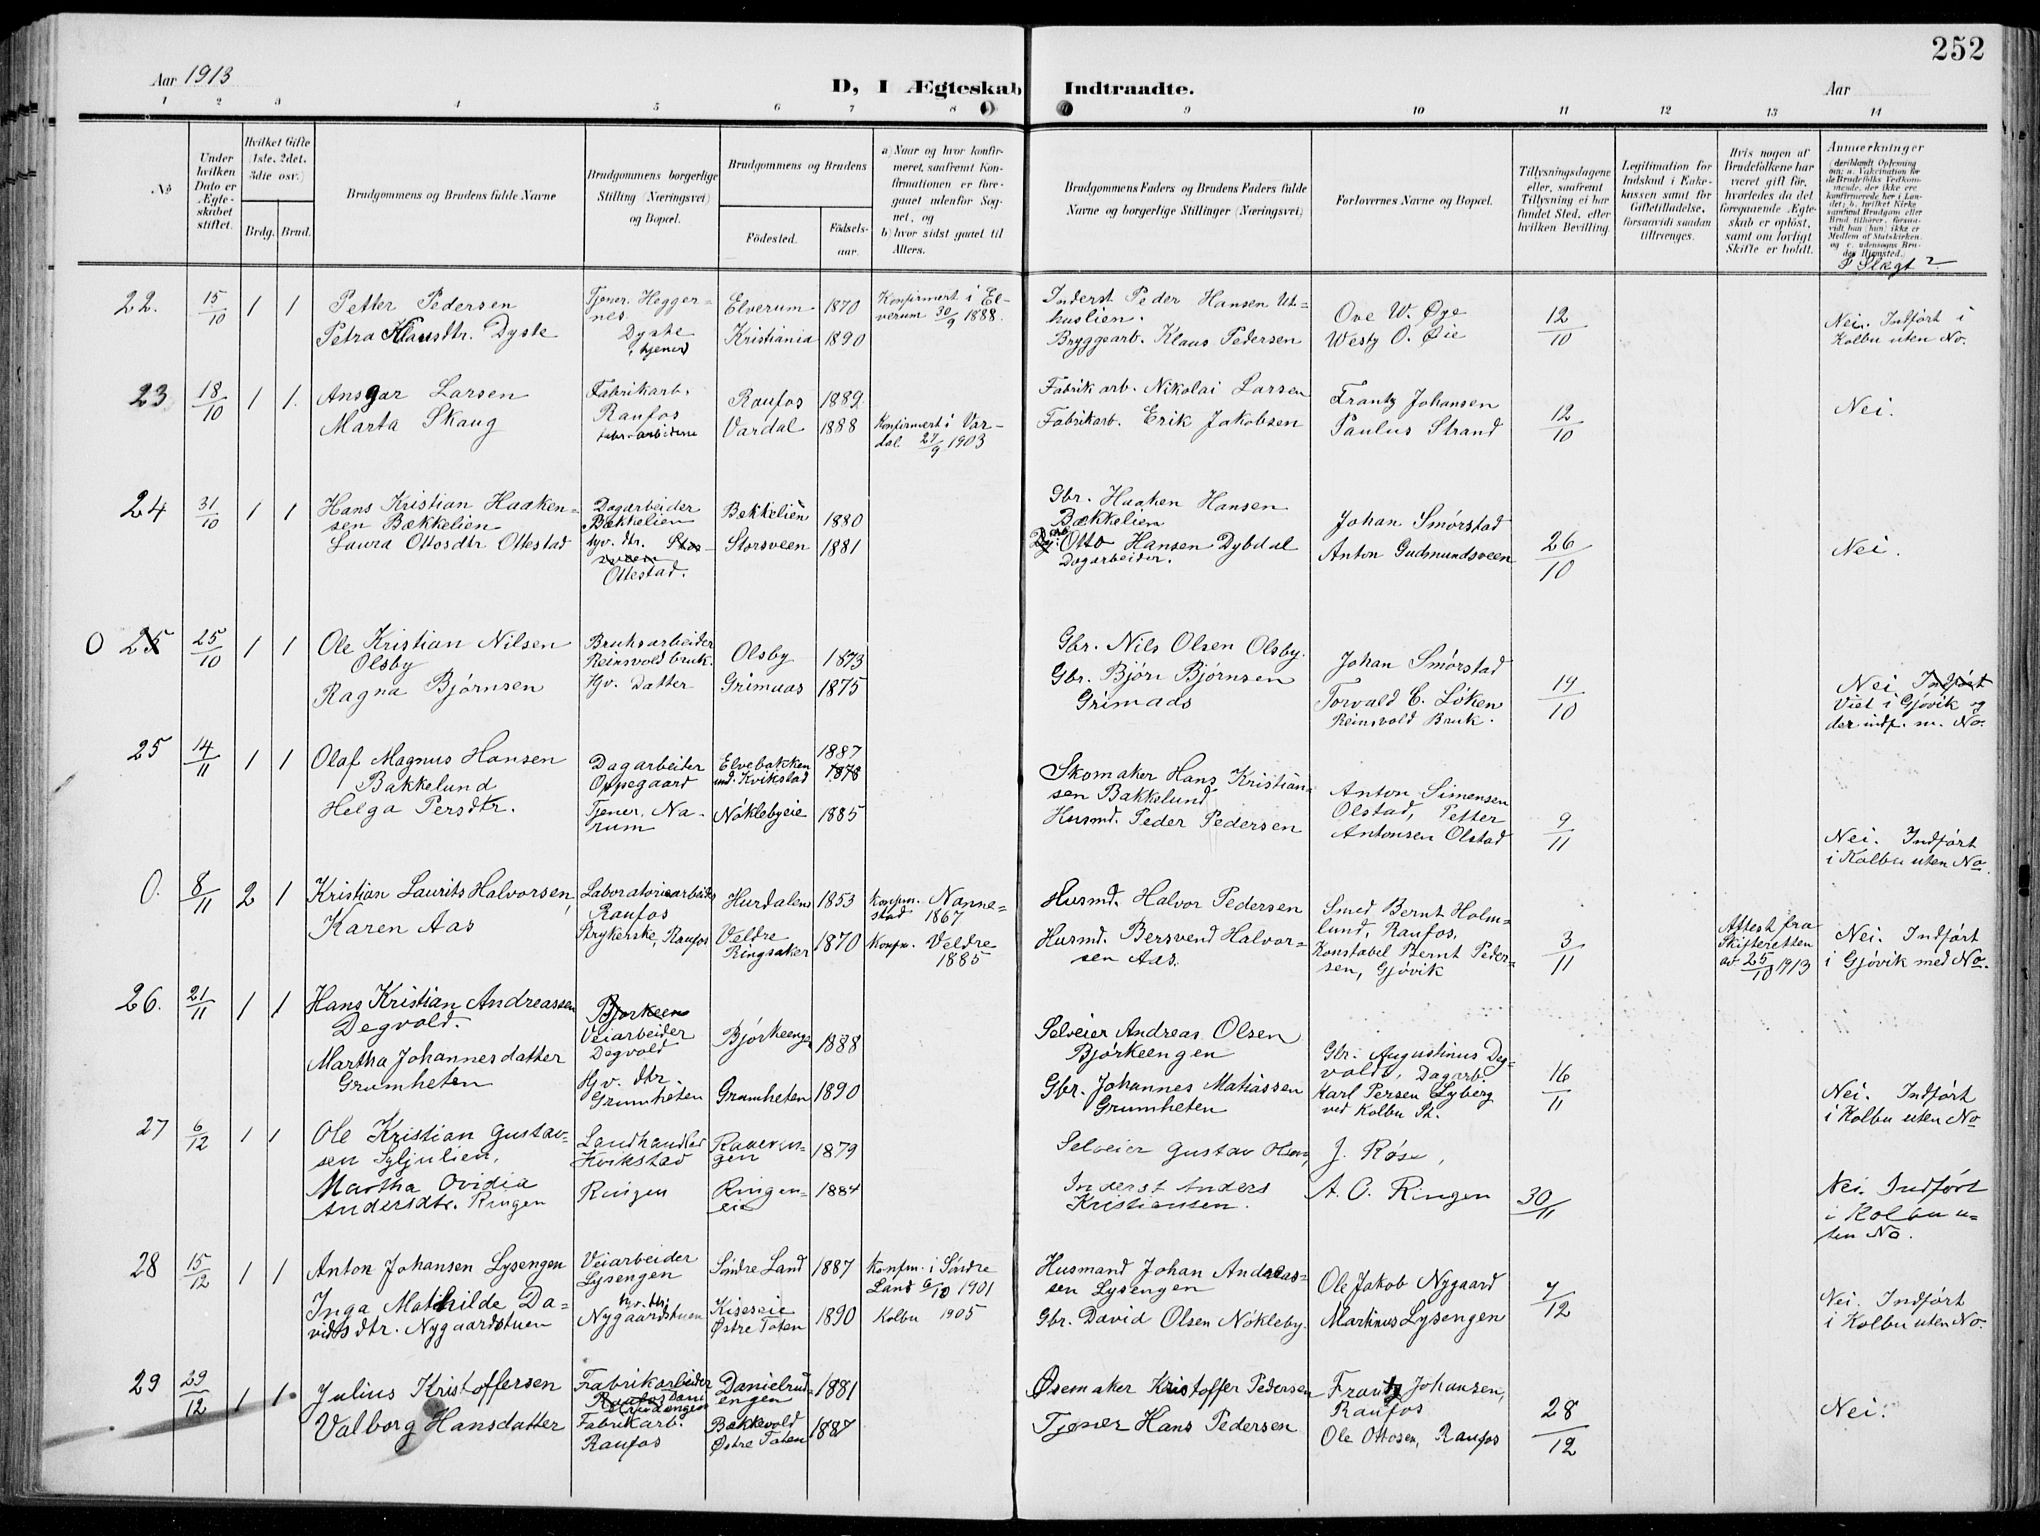 252
Aar 1913
D, I Ægteskab Indtraadte.
Aar
1 2 3 4 5 6 7 8 9 10 11 12 13 14
No
Under hvilken Dato er Ægteskabet stiftet.
Hvilket Gifte (1ste, 2det, 3die osv.)
Brdg. Brud.
Brudgommens og Brudens fulde Navne
Brudgommens borgerlige Stilling (Næringsvei) og Bopæl.
Brudgommens og Brudens
Fødested. Fødselsaar.
a) Naar og hvor konfirmeret, saafremt Konfirmationen er foregaaet udenfor Sognet, og
b) hvor sidst gaaet til Alters.
Brudgommens Faders og Brudens Faders fulde Navne og borgerlige Stillinger (Næringsvei)
Forlovernes Navne og Bopæl.
Tillysningsdagene eller, saafremt Tillysning ei har fundet Sted, efter hvilken Bevilling.
Legitimation for Indskud i Enkekassen samt for Giftetilladelse, forsaavidt saadan tiltrænges.
Hvis nogen af Brudefolkene har været gift før, hvorledes da det foregaaende Ægteskab er opløst, samt om lovligt Skifte er holdt.
Anmærkninger
(deriblandt Oplysning om: a. Vakcination for de Brudefolks Vedkommende, der ikke ere konfirmerede her i Landet; b. hvilket Kirkesamfund Brudgom eller Brud tilhører, forsaavidt han (hun) ikke er Medlem af Statskirken, og c. udensogns Brudes Hjemsted.
I Slægt?
22. 15/10 1 1 Petter Pedersen
Tjener, Heggernes.
Elverum 1870
Konfirmert i Elverum 30/9 1888.
Inderst Peder Hansen Uthuslien.
Ove W. Øye
12/10
Nei. Indført i Kolbu uten No.
Petra Klausdtr. Dyste
Dyste, tjener
Kristiania 1890
Bryggearb. Klaus Pedersen
Westy O. Øie
23 18/10 1 1. Ansgar Larsen
Fabrikarb. Raufos
Raufos 1889
Fabrikarb. Nikolai Larsen
Frantz Johansen
12/10
Nei.
Marta Skaug
fabr.arbeiderske
Vardal 1888
Konfirmert i Vardal 27/9 1903
Fabrikarb. Erik Jakobsen
Paulus Strand
24 31/10 1 1 Hans Kristian Haakensen Bækkelien
Dagarbeider Bækkelien
Bekkelien 1880
Gbr. Haaken Hansen Bækkelien
Johan Smørstad
26/10
Nei.
Laura Ottosdtr Ottestad
hjv. dtr. Storsveen Ottestad.
Storsveen 1881
Otto Hansen Dybdal Dagarbeider.
Anton Gudmundsveen
O 25 25/10 1 1 Ole Kristian Nilsen Olsby
Bruksarbeider Reinsvold bruk.
Olsby 1873
Gbr. Nils Olsen Olsby.
Johan Smørstad
19/10
Nei Indført Viet i Gjøvik og der indf. m. No.
Ragna Bjørnsen
Hjv. Datter
Grimaas 1875
Gbr. Bjørn Bjørnsen Grimaas
Torvald C. Løken Reinsvold Bruk.
25 14/11 1 1 Olaf Magnus Hansen Bakkelund
Dagarbeiter Oppegaard
Elvebakken und. Kvikstad 1887 1878
Skomaker Hans Kristiansen Bakkelund
Anton Simensen Olstad, Petter Antonsen Olstad
9/11
Nei. Indført i Kolbu uten No.
Helga Persdtr.
Tjener, Narum
Nøklebyeie 1885
Husmd. Peder Pedersen
O. 8/11 2 1 Kristian Laurits Halvorsen,
Laboratoriearbeider Raufos
Hurdalen 1853
Konfm. Nannestad 1867
Husmd. Halvor Pedersen
Smed Bernt Holmlund, Raufos.
3/11
Attest fra Skifteretten av 25/10 1913
Nei. Indført i Gjøvik med No.
Karen Aas
Strykerske, Raufos
Veldre Ringsaker 1870
Konfm. Veldre 1885
Husmd. Bersvend Halvorsen Aas.
Konstabel Bernt Pedersen, Gjøvik
26. 21/11 1 1 Hans Kristian Andreassen Degvold.
Bjørkeen Veiarbeider Degvold
Bjørkeengen 1888
Selveier Andreas Olsen Bjørkeengen
Gbr. Augustinus Degvold, Dagarb.
16/11
Nei. Indført i Kolbu uten No
Martha Johannesdatter Grumheten
Hjv. dtr. Grumheten
Grumheten 1890
Gbr. Johannes Matiassen Grumheten
Karl Persen Lyberg ved Kolbu St.
27 6/12 1 1 Ole Kristian Gustavsen Syljulien,
Landhandler Kvikstad
1879
Selveier Gustav Olsen,
J. Røse,
30/11
Nei. Indført i Kolbu uten No.
Martha Ovidia Andersdtr. Ringen
Ringen
Ringeneie 1884
Inderst Anders Kristiansen.
A. O. Ringen
28 15/12 1 1 Anton Johansen Lysengen
Veiarbeider Lysengen
Søndre Land 1887
Konfm. i Søndre Land 6/10 1901
Husmand Johan Andreassen Lysengen
Ole Jakob Nygaard
7/12
Nei. Indført i Kolbu uten No.
Inga Mathilde Davidsdtr. Nygaardstuen
hjv. dtr. Nygaardstuen
Kiseseie Østre Toten 1890
Kolbu 1905
Gbr. David Olsen Nøkleby.
Martinus Lysengen
29 29/12 1 1 Julius Kristoffersen
Fabrikarbeider Raufos Danielrudengen
Danielrudengen 1881
Øsemaker Kristoffer Pedersen
Frantz Johansen, Raufos
28/12
Nei.
Valborg Hansdatter
Fabrikarb. Raufos
Bækkevold Østre Toten 1887
Tjener Hans Pedersen
Ole Ottosen, Raufos